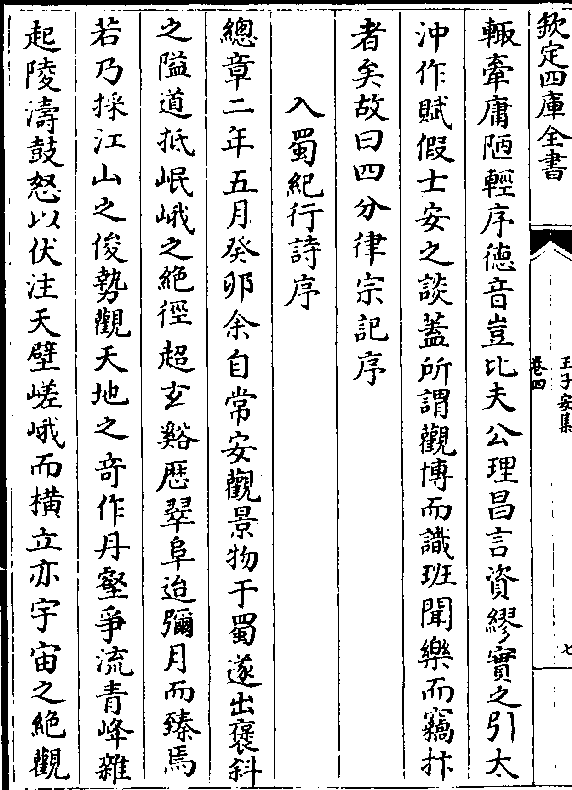 欽定四庫全書
王子安集
卷四
七
輒牽庸陋輕序德音豈比夫公理昌言資繆實之引太
沖作賦假士安之談蓋所謂觀博而識班聞樂而竊抃
者矣故曰四分律宗記序
入蜀紀行詩序
總章二年五月癸卯余自常安觀景物于蜀遂出褒斜
之隘道抵岷峨之絶徑超玄谿歴翠阜迨彌月而臻焉
若乃採江山之俊勢觀天地之奇作丹壑爭流青峰雜
起陵濤鼓怒以伏注天壁嵯峨而横立亦宇宙之絶觀